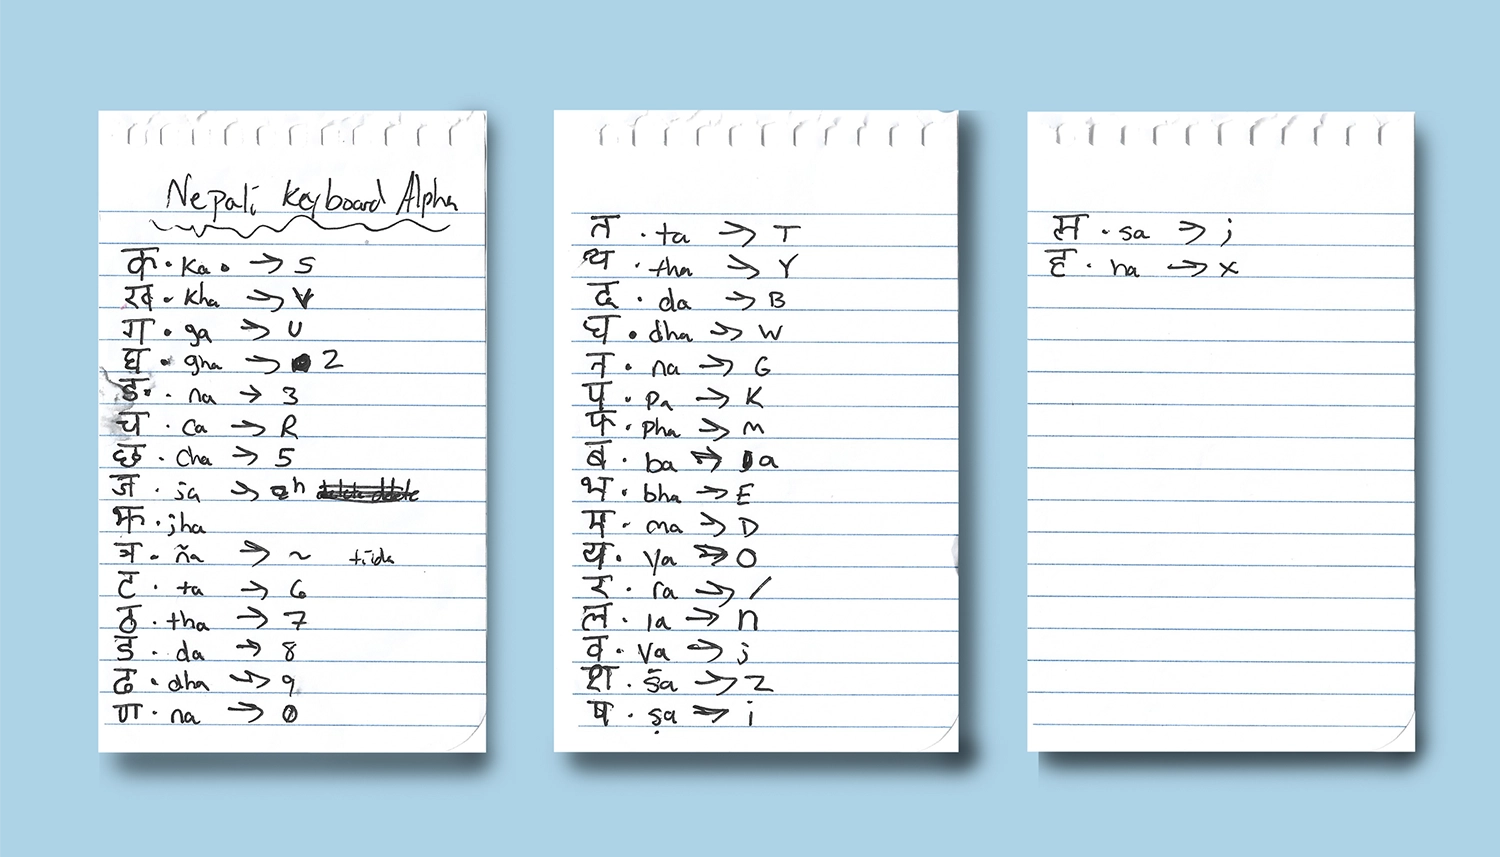 Nepali Keyboard Alpha
क · ka · → S
ख · kha → V
ग · ga → U
घ · gha → 2
ङ · na → 3
च · ca → R
छ · cha → 5
ज · ja → h
झ · jha
ञ · ña → ~ tilda
ट · ta → 6
ठ · tha → 7
ड · da → 8
ढ · dha → 9
ण · na → 0
त · ta → T
थ · tha → Y
द · da → B
घ · dha → W
न · na → G
प · pa → K
फ · pha → M
ब · ba → a
भ · bha → E
म · ma → D
य · ya → O
र · ra → /
ल · la → n
व · va → j
श · s̄a → Z
ष · ṣa → i
स · sa → ;
ह · ha → x